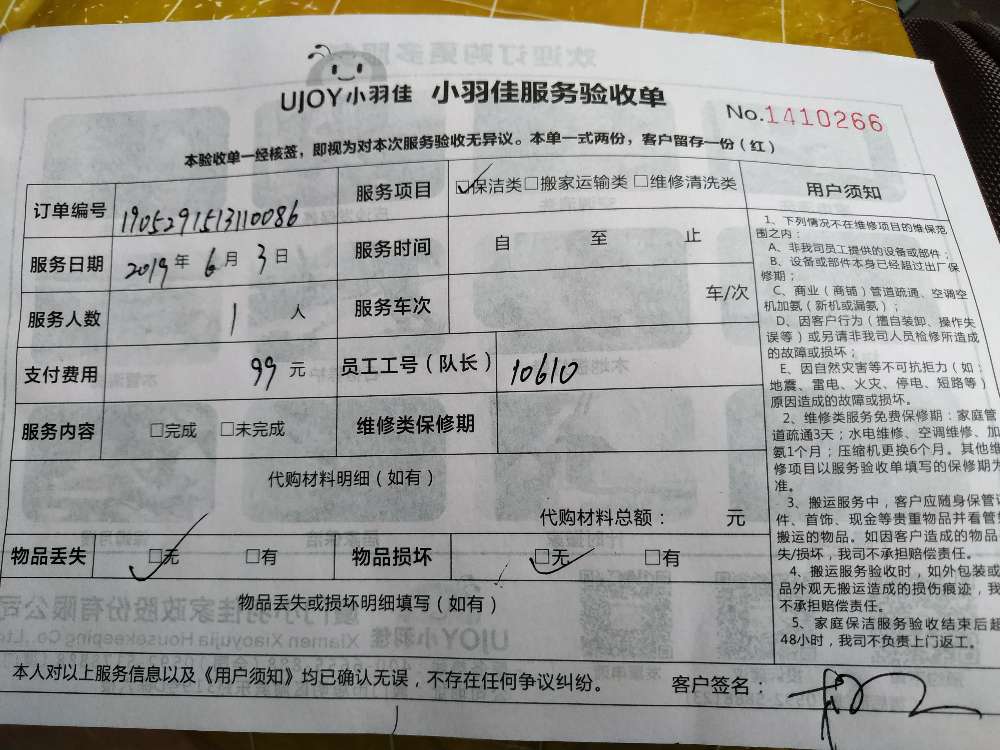 UJOY小羽佳 小羽佳服务验收单
No.1410266
本验收单一经核签，即视为对本次服务验收无异议。本单一式两份，客户留存一份（红）
订单编号 1905291513110086 服务项目 ☑保洁类□搬家运输类□维修清洗类
服务日期 2019年 6月 3日 服务时间 自 至 止
服务人数 1 人 服务车次 车/次
支付费用 99 元 员工工号（队长） 10610
服务内容 □完成 □未完成 维修类保修期
代购材料明细（如有）
代购材料总额： 元
物品丢失 ☑无 □有 物品损坏 ☑无 □有
物品丢失或损坏明细填写（如有）
用户须知
1、下列情况不在维修项目的维保范
围之内：
A、非我司员工提供的设备或部件；
B、设备或部件本身已经超过出厂保
修期；
C、商业（商铺）管道疏通、空调空
机加氨（新机或漏氨）；
D、因客户行为（擅自装卸、操作失
误等）或另请非我司人员检修所造成
的故障或损坏；
E、因自然灾害等不可抗拒力（如：
地震、雷电、火灾、停电、短路等）
原因造成的故障或损坏。
2、维修类服务免费保修期：家庭管
道疏通3天；水电维修、空调维修、加
氨1个月；压缩机更换6个月。其他维
修项目以服务验收单填写的保修期为
准。
3、搬运服务中，客户应随身保管证
件、首饰、现金等贵重物品并看管
搬运的物品。如因客户造成的物品
失/损坏，我司不承担赔偿责任。
4、搬运服务验收时，如外包装或
品外观无搬运造成的损伤痕迹，我
不承担赔偿责任。
5、家庭保洁服务验收结束后超
48小时，我司不负责上门返工。
本人对以上服务信息以及《用户须知》均已确认无误，不存在任何争议纠纷。 客户签名：